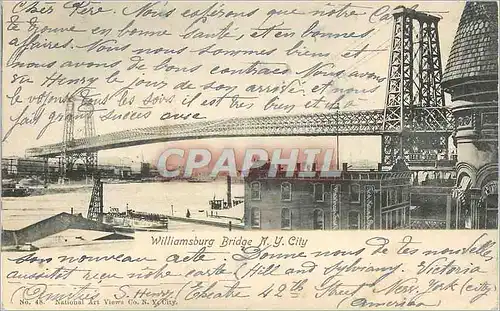 Cher Père. Nous espérons que notre Carte
te trouve en bonne Santé, et en bonnes
affaires. Nous nous sommes bien et
nous avons de bons contracs. Nous avons
Henry le jour de son arrivé et nous
le voyons tous les soirs il est très bus et a
fait grand succès avec
son nouveau acte. Donne nous de tes nouvelle
aussitôt notre carte (Hill and Sylviany. Victoria
Amitiés S. Henry (Theatre 42th Street New York (city)
(America)
CPAPHIL
Williamsburg Bridge N. Y. City
No. 48. National Art Views Co. N. Y. City.